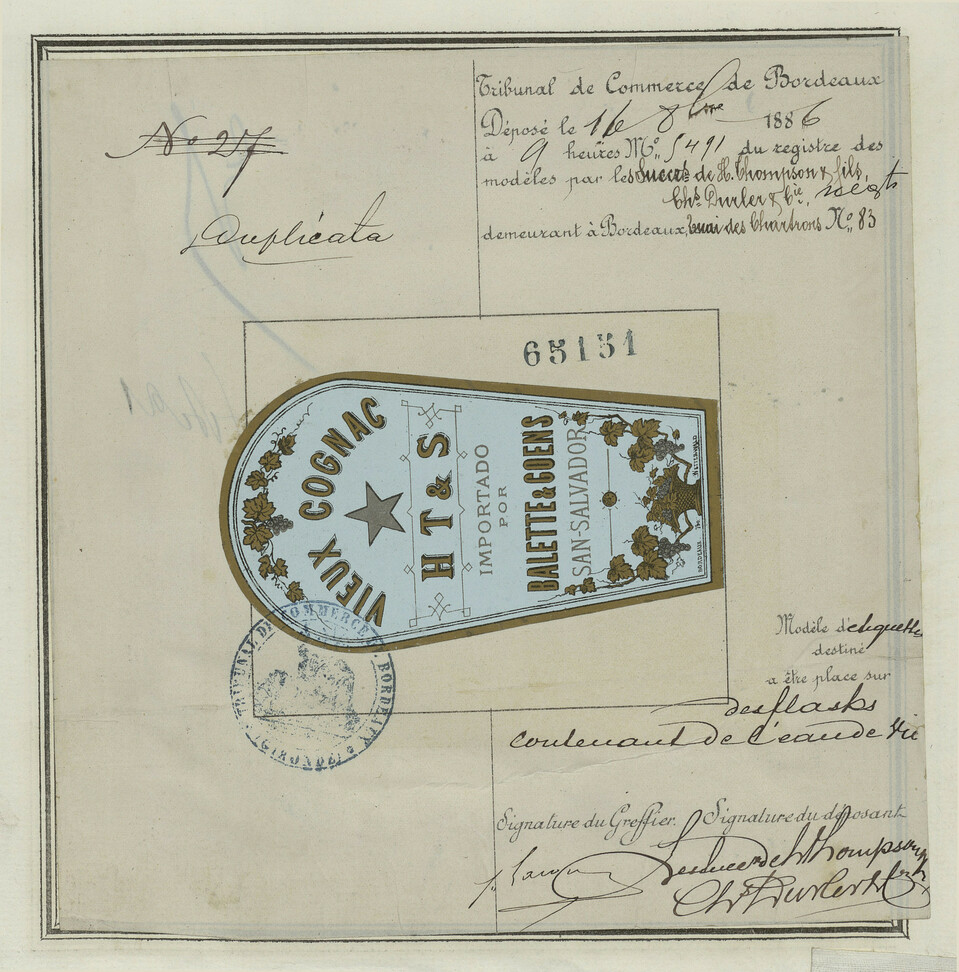 Tribunal de Commerce de Bordeaux
Déposé le 16 8bre 1886
à 9 heures No. 5491 du registre des
modèles par les Succrs de H. Thompson & fils,
Chs. Durler & Cie, négts
demeurant à Bordeaux, quai des Chartrons No. 83
No 27
Duplicata
65151
VIEUX COGNAC
H T & S
IMPORTADO
POR
BALETTE & GOENS
SAN-SALVADOR
BORDEAUX
TRIBUNAL DE COMMERCE BORDEAUX
(GIRONDE)
Modèle d'etiquette
destiné
a être place sur
des flasks
contenant de l'eau de vie
Signature du Greffier. Signature du déposant
Les succrs de H Thompson & fils
Chs Durler & Cie